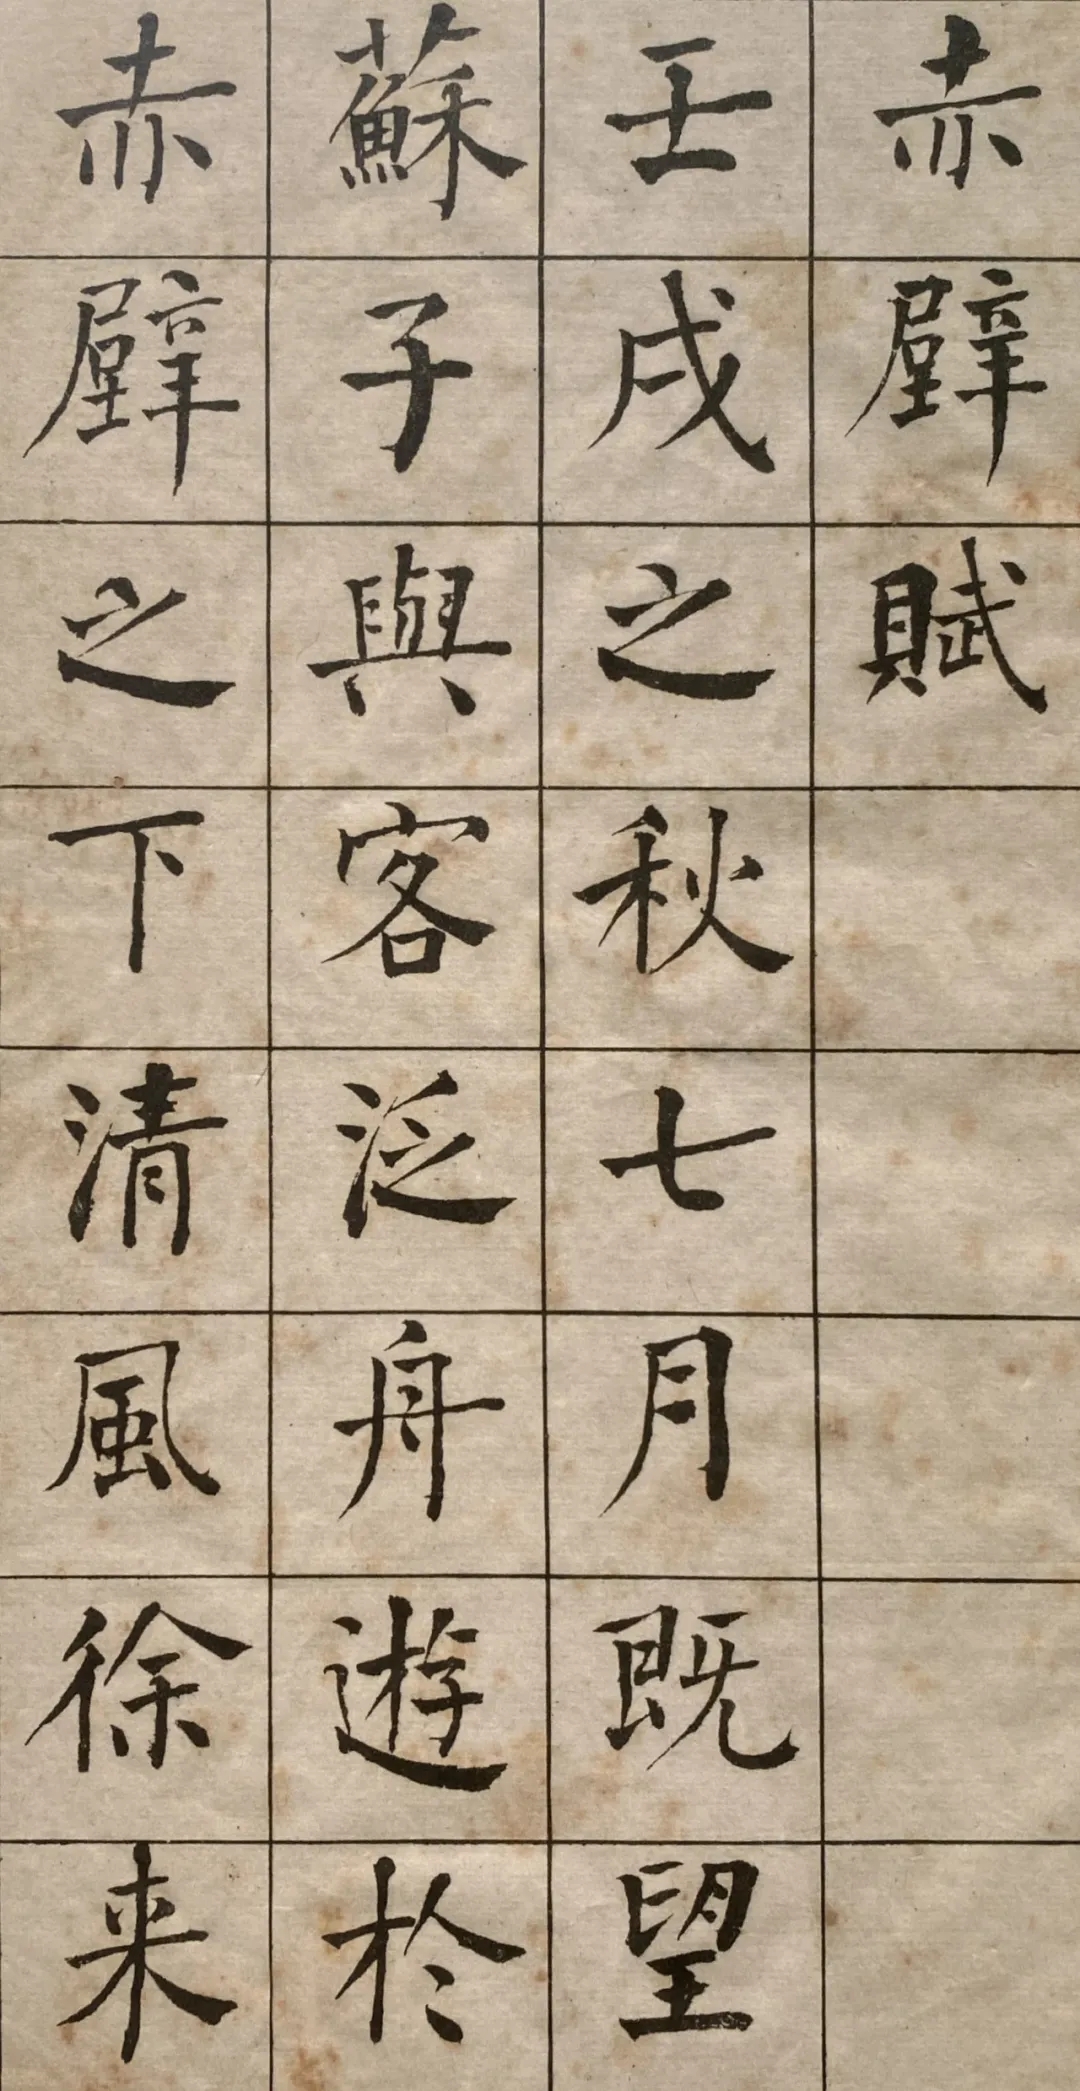 赤壁賦
壬戌之秋七月既望
蘇子與客泛舟遊於
赤壁之下清風徐来